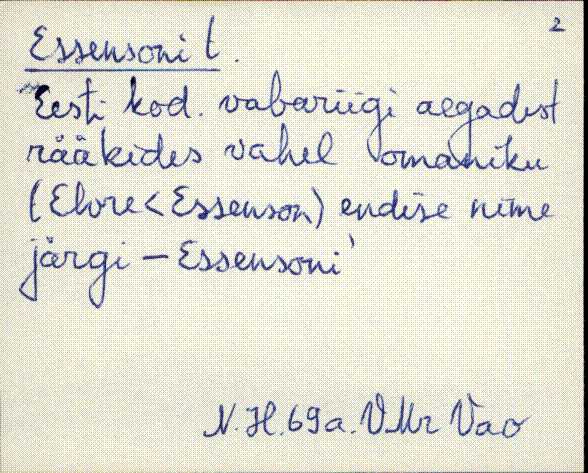 2
Essensoni t.
Eesti kod. vabariigi aegadest
rääkides vahel omaniku
(Elvre < Essenson) endise nime
järgi – Essensoni'
N. H. 69 a. VMr Vao